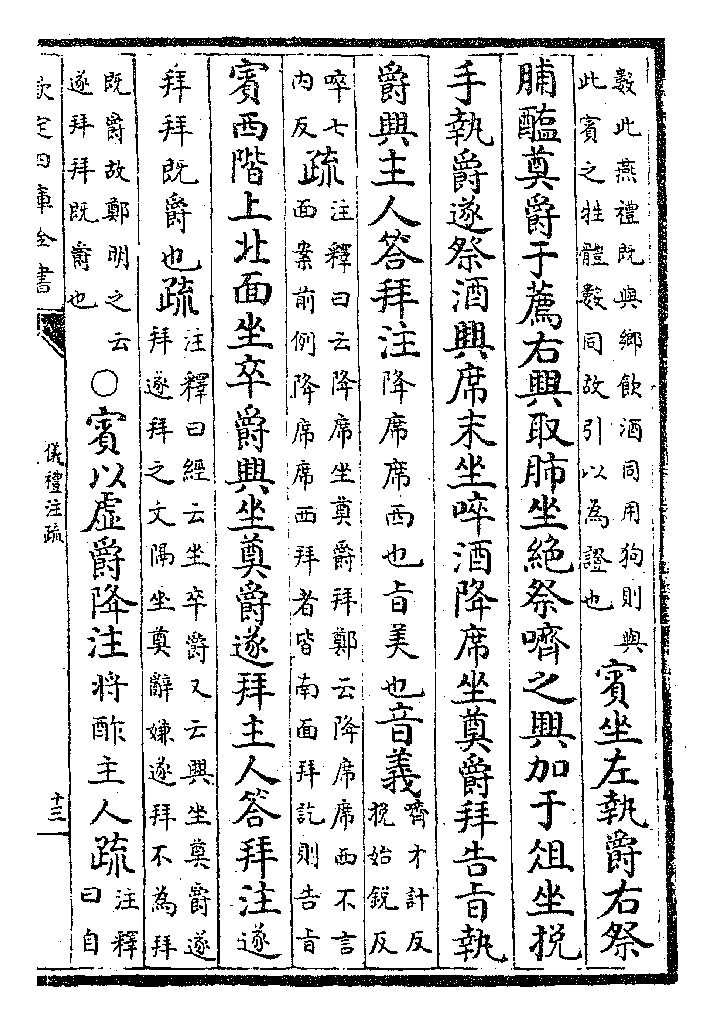 數此燕禮既與鄉飲酒同用狗則與
此賓之牲體數同故引以為證也
賓坐左執爵右祭
脯醢奠爵于薦右興取肺坐絶祭嚌之興加于俎坐挩
手執爵遂祭酒興席末坐啐酒降席坐奠爵拜告旨執
爵興主人答拜注降席席西也旨美也音義
嚌才計反
挩始鋭反
啐七
内反
疏
注釋曰云降席坐奠爵拜鄭云降席席西不言
面案前例降席席西拜者皆南面拜訖則告旨
賓西階上北面坐卒爵興坐奠爵遂拜主人答拜注遂
拜拜既爵也疏
注釋曰經云坐卒爵又云興坐奠爵遂
拜遂拜之文隔坐奠辭嫌遂拜不為拜
既爵故鄭明之云
遂拜拜既爵也
○賓以虛爵降注將酢主人疏
注釋
曰自
欽定四庫全書
儀禮注疏
十三